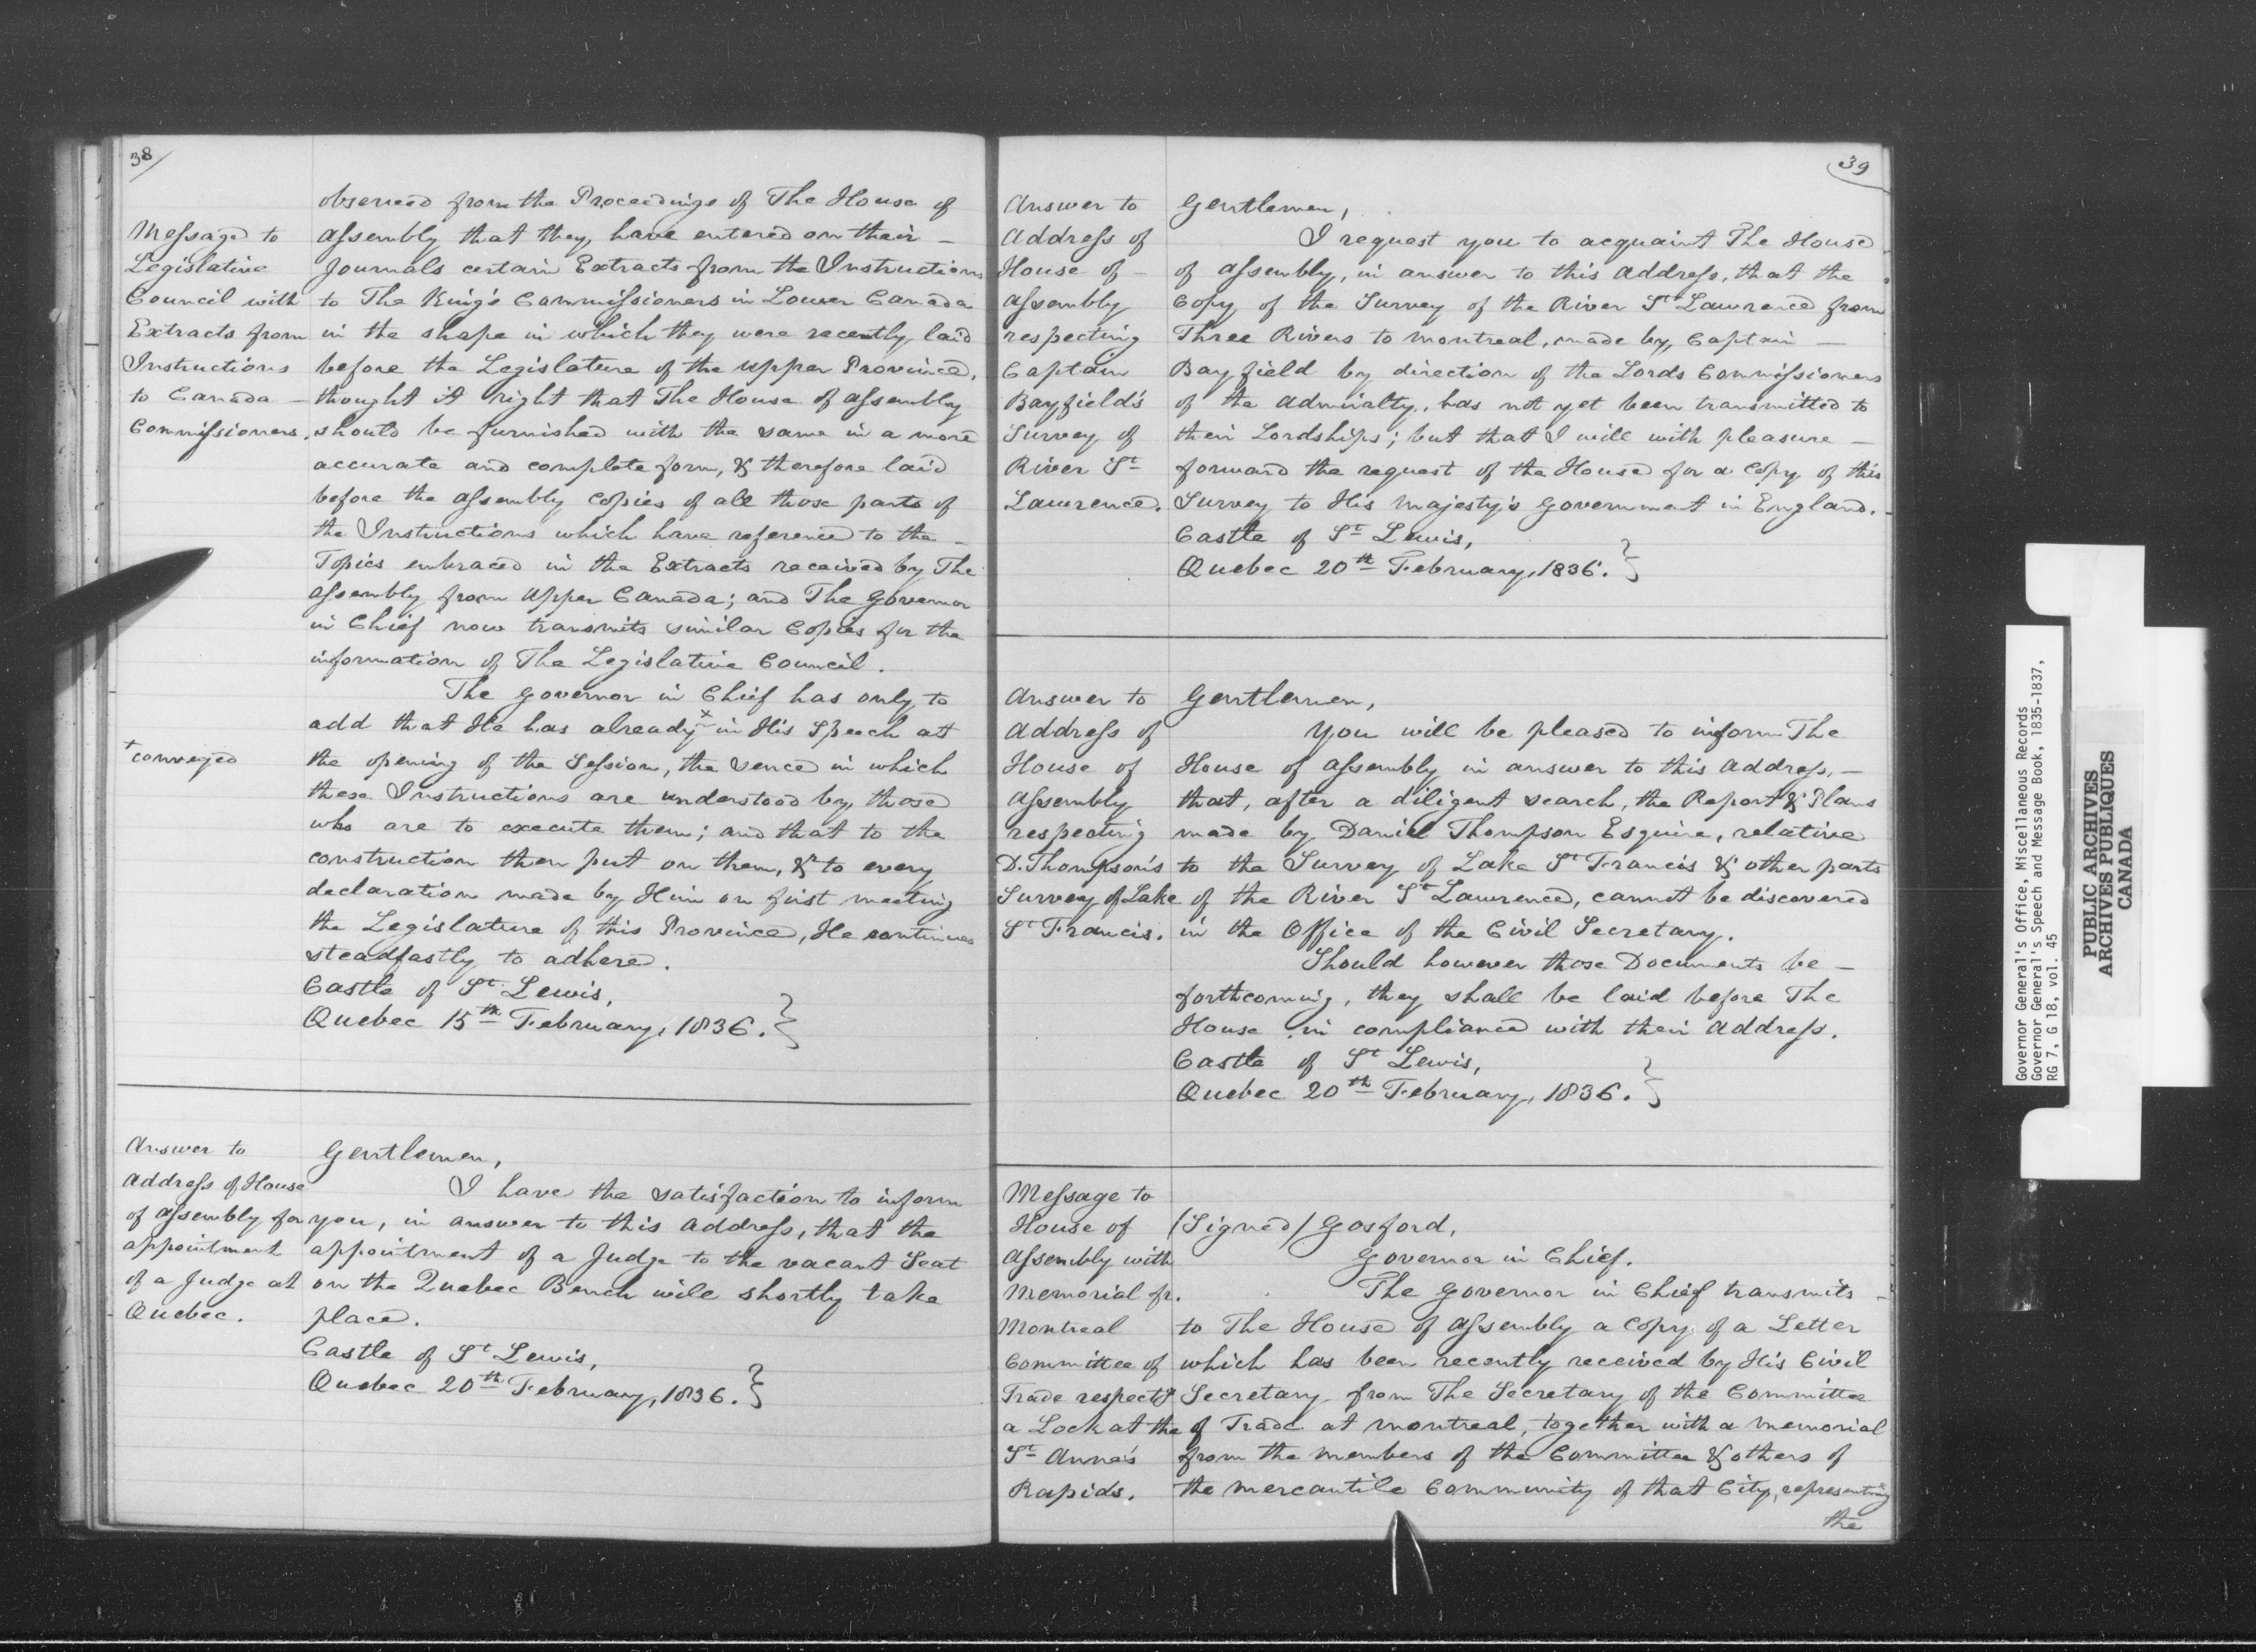 38
Message to
Legislative
Council with
Extracts from
Instructions
to Canada –
Commissioners.
observed from the Proceedings of The House of
Assembly that they, have entered on their –
Journals certain Extracts from the Instructions
to The King's Commissioners in Lower Canada
in the shape in which they were recently laid
before the Legislature of the Upper Province,
thought it right that The House of Assembly
should be furnished with the same in a more
accurate and complete form, & therefore laid
before the Assembly Copies of all those parts of
the Instructions which have reference to the –
Topics embraced in the Extracts received by The
Assembly from Upper Canada; and The Governor
in Chief now transmits similar Copies for the
information of The Legislative Council.
The Governor in Chief has only to
add that He has already x in His Speech at
+ conveyed
the opening of the Session, the sence in which
these Instructions are understood by those
who are to execute them; and that to the
construction then put on them, & to every
declaration made by Him on first meeting
the Legislature of this Province, He continues
steadfastly to adhere.
Castle of St Lewis,
Quebec 15th February, 1836. }
Answer to
Address of House
of Assembly for
appointment
of a Judge at
Quebec.
Gentlemen,
I have the satisfaction to inform
you, in answer to this Address, that the
appointment of a Judge to the vacant Seat
on the Quebec Bench will shortly take
place.
Castle of St Lewis,
Quebec 20th February, 1836. }
39
Answer to
Address of
House of –
Assembly
respecting
Captain
Bayfield's
Survey of
River St
Lawrence.
Gentlemen,
I request you to acquaint The House
of Assembly, in answer to this Address, that the
Copy of the Survey of the River St Lawrence from
Three Rivers to Montreal, made by Captain –
Bayfield by direction of the Lords Commissioners
of the Admiralty, has not yet been transmitted to
their Lordships; but that I will with pleasure –
forward the request of the House for a Copy of this
Survey to His Majesty's Government in England.
Castle of St Lewis,
Quebec 20th February, 1836. }
Answer to
Address of
House of
Assembly
respecting
D. Thompson's
Survey of Lake
St Francis.
Gentlemen,
You will be pleased to inform The
House of Assembly in answer to this Address, –
that, after a diligent search, the Report & Plans
made by Daniel Thompson Esquire, relative
to the Survey of Lake St Francis & other parts
of the River St Lawrence, cannot be discovered
in the Office of the Civil Secretary.
Should however those Documents be –
forthcoming, they shall be laid before The
House in compliance with their Address.
Castle of St Lewis,
Quebec 20th February, 1836. }
Message to
House of
Assembly with
Memorial fr.
Montreal
Committee of
Trade respectg
a Lock at the
St Anne's
Rapids.
(Signed) Gosford,
Governor in Chief.
The Governor in Chief transmits –
to The House of Assembly a Copy of a Letter
which has been recently received by His Civil
Secretary from The Secretary of the Committee
of Trade at Montreal, together with a Memorial
from the Members of the Committee & others of
the Mercantile Community of that City, representing
the
Governor General's Office, Miscellaneous Records
Governor General's Speech and Message Book, 1835-1837,
RG 7, G 18, vol. 45
PUBLIC ARCHIVES
ARCHIVES PUBLIQUES
CANADA